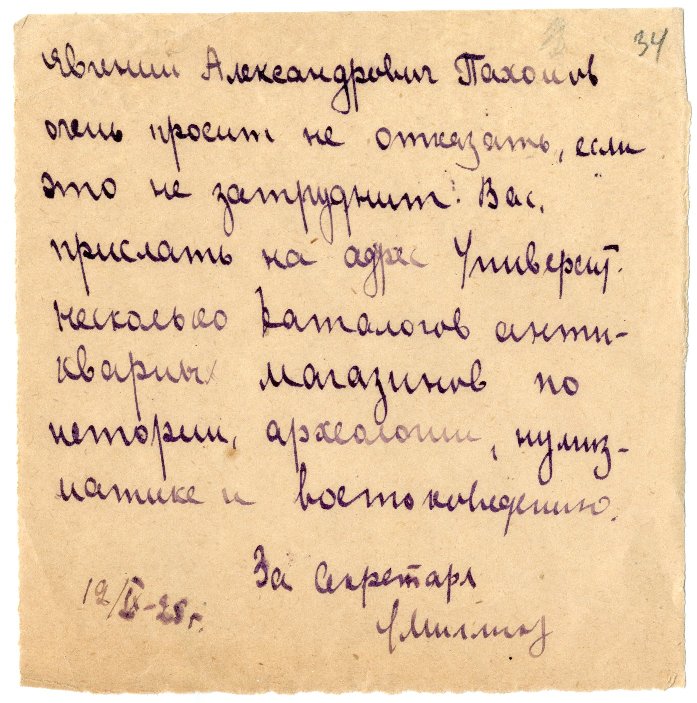 34
Евгений Александрович Пахомов
очень просит не отказать, если
это не затруднит Вас,
прислать на адрес Университ.
несколько каталогов анти-
кварных магазинов по
истории, археологии, нумиз-
матике и востоковедению.
За Секретаря
12/IX-25 г.